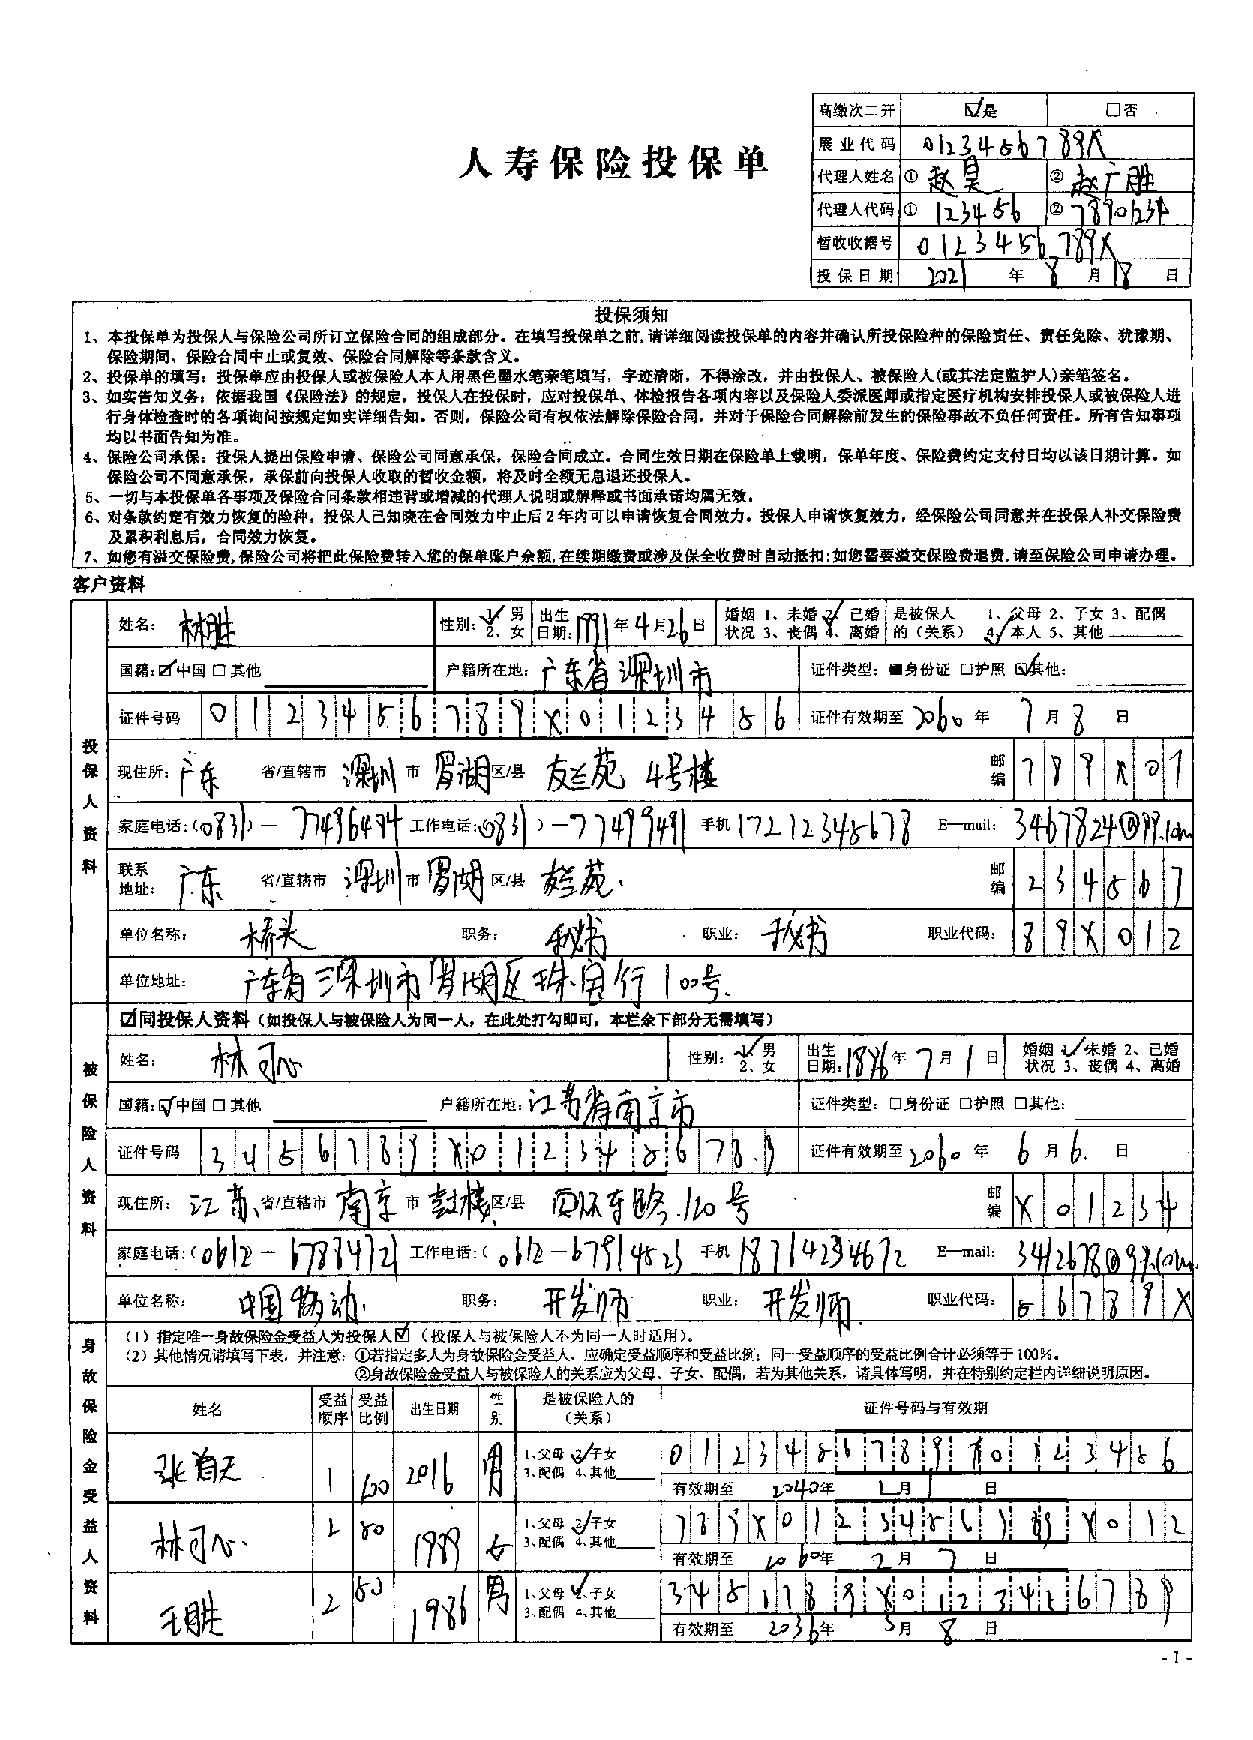 高缴次二开 ☑是 □否
人寿保险投保单
展业代码 0123456789X
代理人姓名 ① 赵昊 ② 赵广胜
代理人代码 ① 123456 ② 7890123
暂收收据号 0123456789X
投保日期 2021 年 8 月 18 日
投保须知
1、本投保单为投保人与保险公司所订立保险合同的组成部分。在填写投保单之前,请详细阅读投保单的内容并确认所投保险种的保险责任、责任免除、犹豫期、
保险期间、保险合同中止或复效、保险合同解除等条款含义。
2、投保单的填写:投保单应由投保人或被保险人本人用黑色墨水笔亲笔填写,字迹清晰,不得涂改,并由投保人、被保险人(或其法定监护人)亲笔签名。
3、如实告知义务:依据我国《保险法》的规定,投保人在投保时,应对投保单、体检报告各项内容以及保险人委派医师或指定医疗机构安排投保人或被保险人进
行身体检查时的各项询问按规定如实详细告知。否则,保险公司有权依法解除保险合同,并对于保险合同解除前发生的保险事故不负任何责任。所有告知事项
均以书面告知为准。
4、保险公司承保:投保人提出保险申请、保险公司同意承保,保险合同成立。合同生效日期在保险单上载明,保单年度、保险费约定支付日均以该日期计算。如
保险公司不同意承保,承保前向投保人收取的暂收金额,将及时全额无息退还投保人。
5、一切与本投保单各事项及保险合同条款相违背或增减的代理人说明或解释或书面承诺均属无效。
6、对条款约定有效力恢复的险种,投保人已知晓在合同效力中止后2年内可以申请恢复合同效力。投保人申请恢复效力,经保险公司同意并在投保人补交保险费
及累积利息后,合同效力恢复。
7、如您有溢交保险费,保险公司将把此保险费转入您的保单账户余额,在续期缴费或涉及保全收费时自动抵扣;如您需要溢交保险费退费,请至保险公司申请办理。
客户资料
投保人资料
姓名: 林胜 性别: 1、男 2、女 出生日期: 1991 年 4 月 26 日 婚姻状况 1、未婚 2、已婚 3、丧偶 4、离婚 是被保人的(关系) 1、父母 2、子女 3、配偶 4、本人 5、其他
国籍:☑中国 □其他 户籍所在地: 广东省深圳市 证件类型:■身份证 □护照 ☑其他:
证件号码 0123456789X0123456 证件有效期至 2060 年 7 月 8 日
现住所: 广东 省/直辖市 深圳 市 罗湖 区/县 友兰苑 4号楼 邮编 789X01
家庭电话:(0831)-77496494 工作电话:(0831)-77499491 手机 17212345678 E—mail: 3467824@99.com
联系地址: 广东 省/直辖市 深圳 市 罗湖 区/县 友兰苑. 邮编 234567
单位名称: 桥头 职务: 秘书 职业: 秘书 职业代码: 89X012
单位地址: 广东省深圳市罗湖区珠宝行100号.
被保险人资料
☑同投保人资料(如投保人与被保险人为同一人,在此处打勾即可,本栏余下部分无需填写)
姓名: 林可心 性别: 1、男 2、女 出生日期: 1886 年 7 月 1 日 婚姻状况 1、未婚 2、已婚 3、丧偶 4、离婚
国籍:☑中国 □其他 户籍所在地: 江苏省南京市 证件类型:□身份证 □护照 □其他:
证件号码 3456789X0123456789 证件有效期至 2060 年 6 月 6. 日
现住所: 江苏 省/直辖市 南京 市 鼓楼 区/县 东路.120号 邮编 X01234
家庭电话:(0612-6788472) 工作电话:(0612-67914523 手机 18714234672 E—mail: 3412678@99.com
单位名称: 中国移动. 职务: 开发师 职业: 开发师. 职业代码: 56789X
身故保险金受益人资料
(1)指定唯一身故保险金受益人为投保人☑(投保人与被保险人不为同一人时适用)。
(2)其他情况请填写下表,并注意:①若指定多人为身故保险金受益人,应确定受益顺序和受益比例;同一受益顺序的受益比例合计必须等于100%。
②身故保险金受益人与被保险人的关系应为父母、子女、配偶,若为其他关系,请具体写明,并在特别约定栏内详细说明原因。
姓名 受益顺序 受益比例 出生日期 性别 是被保险人的(关系) 证件号码与有效期
张首天 1 100 2016 男 1.父母 2.子女 3.配偶 4.其他 0123456789X0123456
有效期至 2040年 1月1 日
林可心. 2 50 1989 女 1.父母 2.子女 3.配偶 4.其他 789X0123456789X012
有效期至 2060年 2月 7 日
王胜 2 50 1986 男 1.父母 2.子女 3.配偶 4.其他 3456789X0123456789
有效期至 2036年 5月 8 日
- 1 -